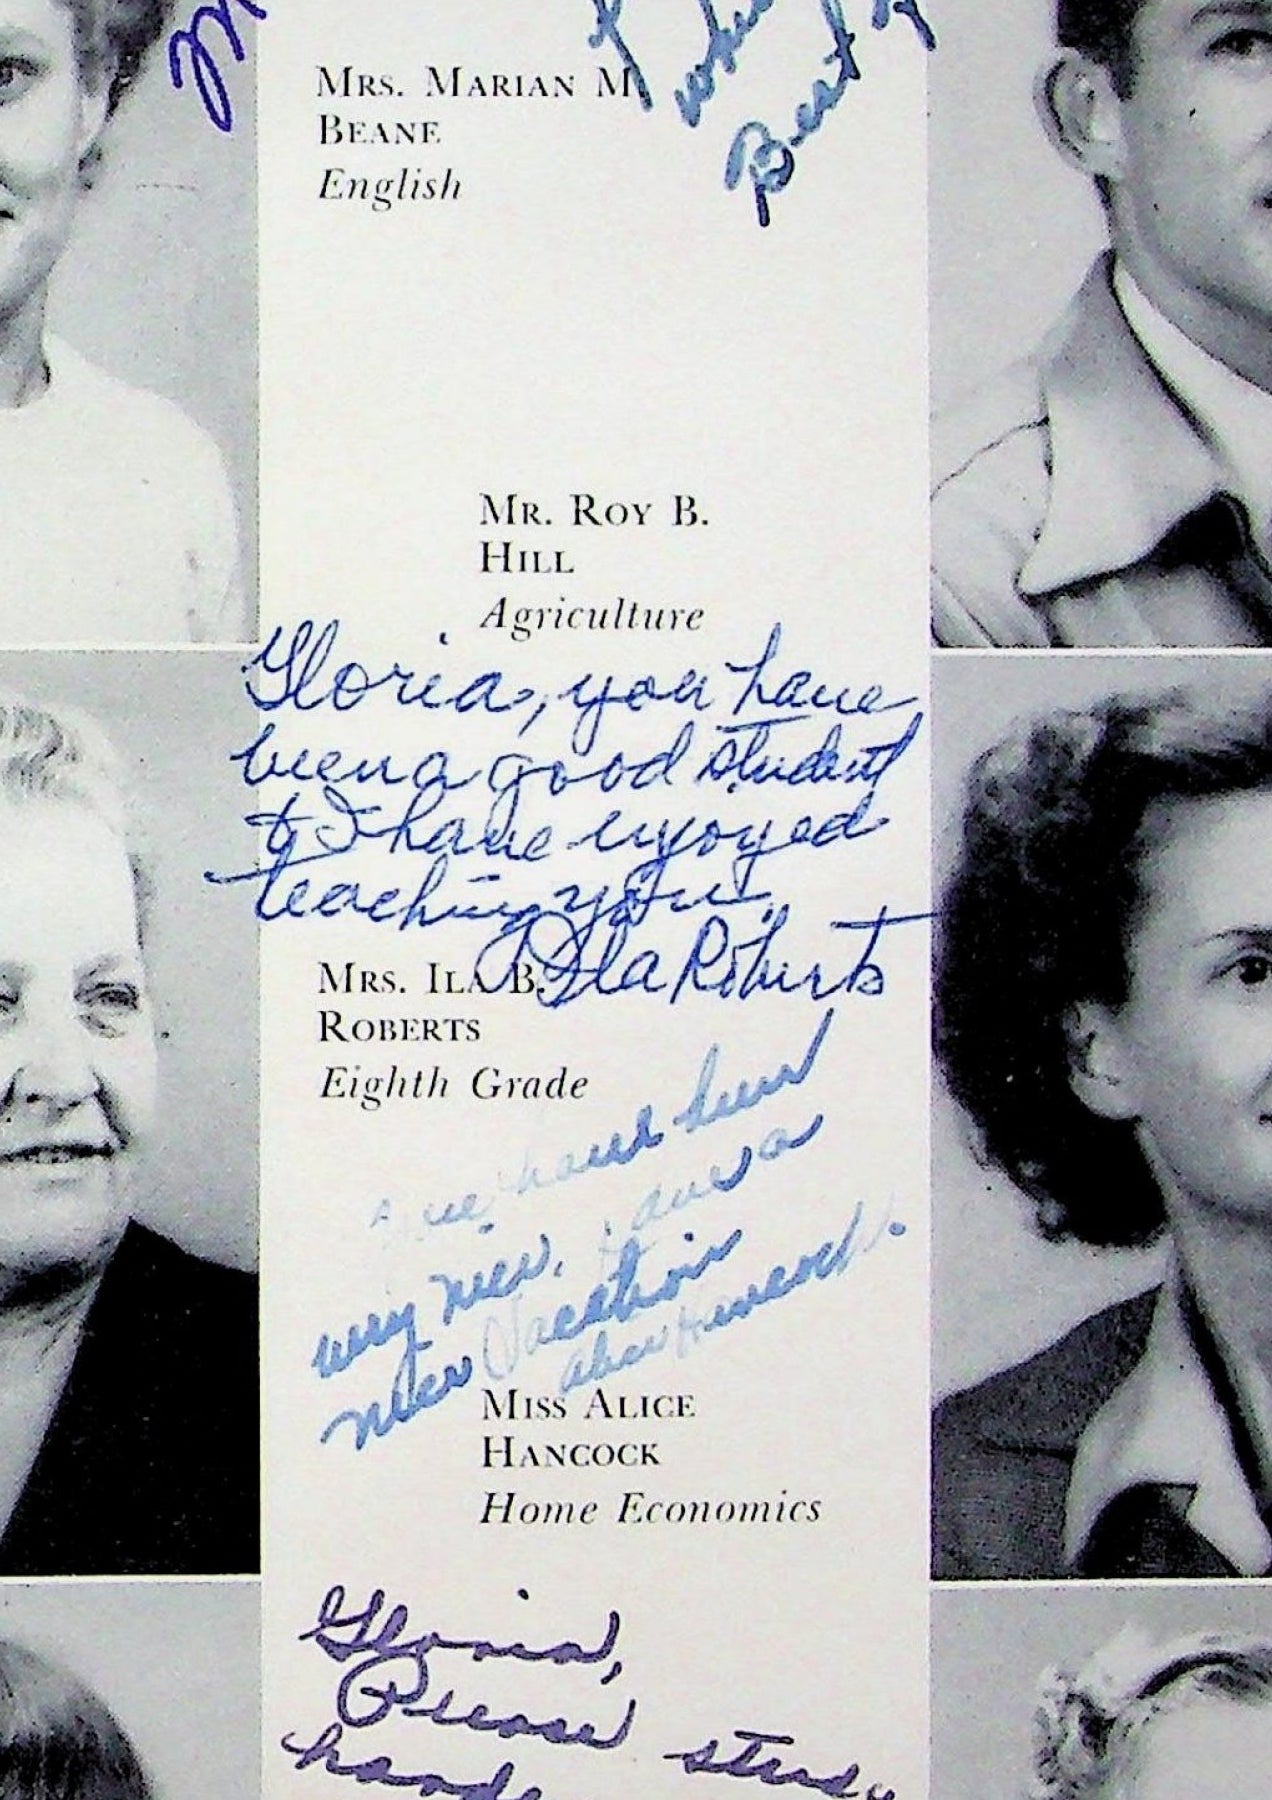 Mrs. Marian M.
Beane
English
Bert
Mr. Roy B.
Hill
Agriculture
Gloria, you have
been a good student
& I have enjoyed
teaching you.
Ila Roberts
Mrs. Ila B.
Roberts
Eighth Grade
have been
very nice. Have a
nice Vacation
Alice Hancock.
Miss Alice
Hancock
Home Economics
Gloria,
Please study